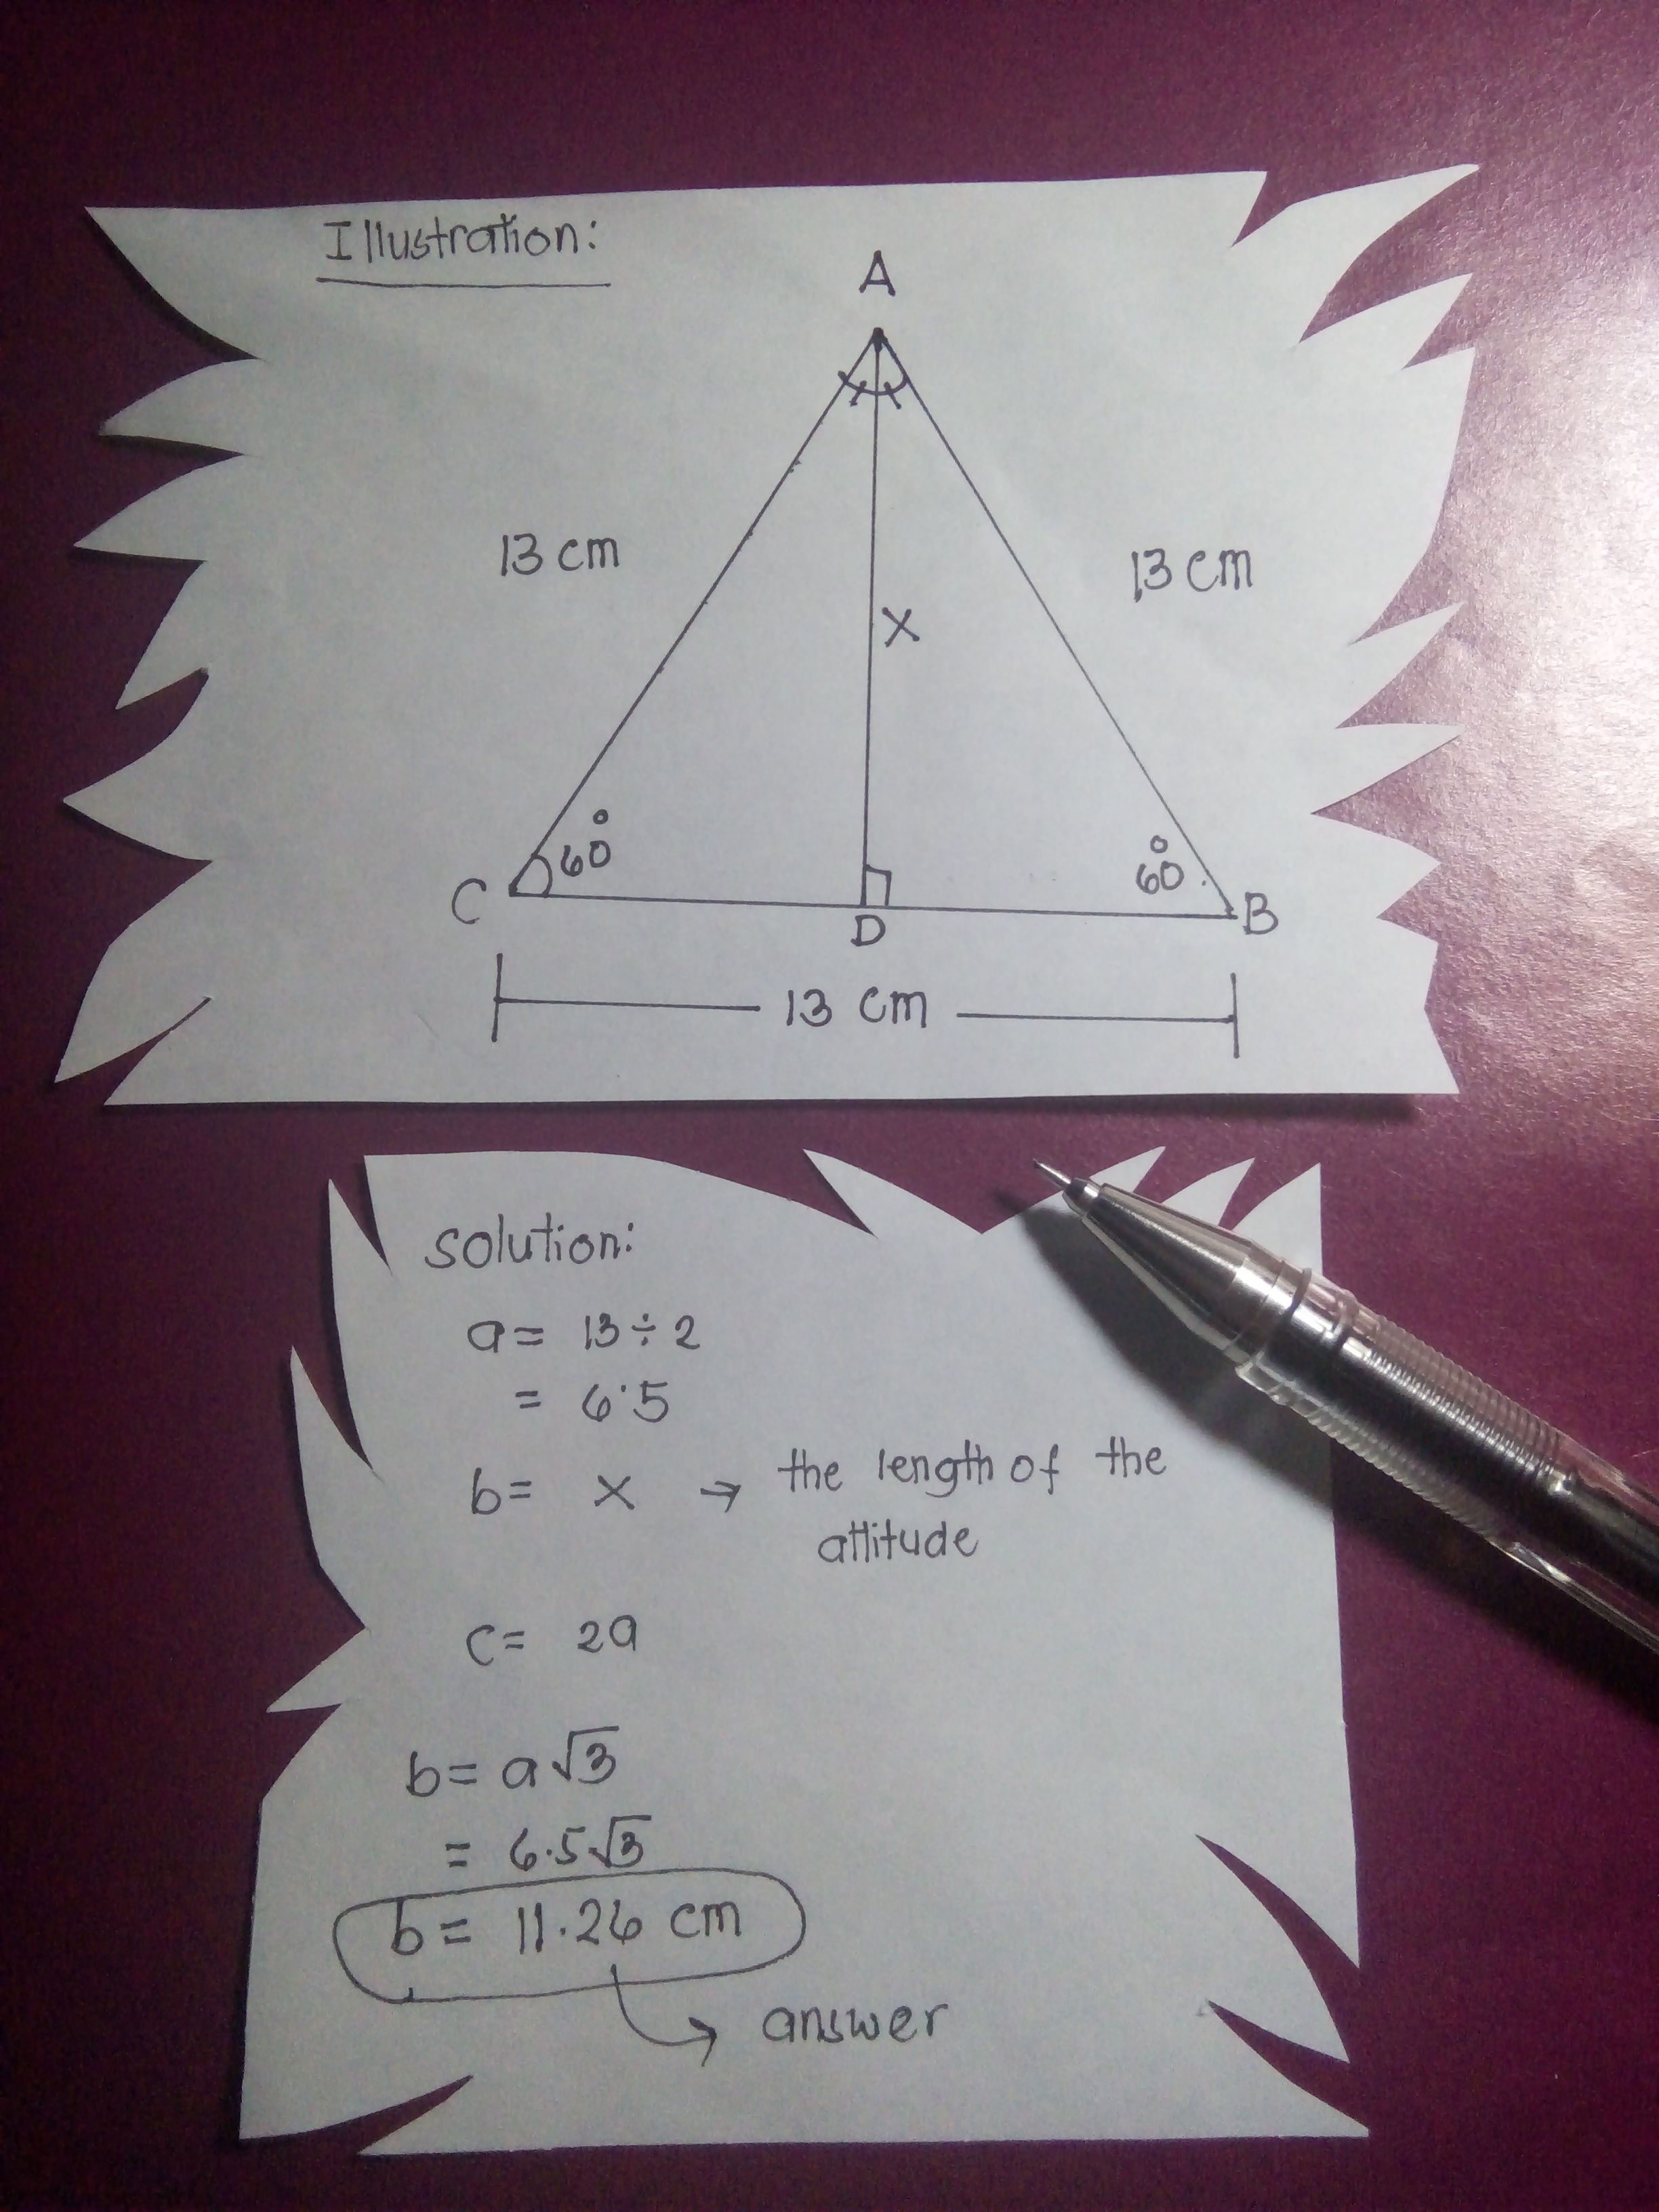 Illustration:
A
13 cm
13 cm
X
60°
60°
C
D
B
13 cm
solution:
a = 13 ÷ 2
= 6.5
b = x → the length of the
altitude
c = 2a
b = a√3
= 6.5√3
b = 11.26 cm
answer